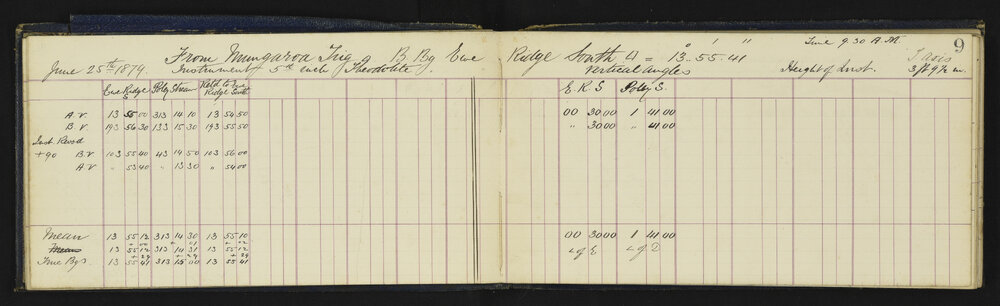 From Mungaroa Trig B. Bg Ewe Ridge South △ = 13° 55' 41" Time 9.30 A.M. 9
June 25th 1879. Instrument 5th inch Theodolite Vertical Angles Height of Inst. 3 ft 9½ in.
Ewe Ridge Poley Stream Retd to Ewe Ridge South E. R. S Poley S.
A.V. 13 55 00 313 14 10 13 54 50 00 30 00 1 41 00
B.V. 193 56 30 133 15 30 193 55 50 " 30 00 " 41 00
Inst Revsd
+90 B.V 103 55 40 43 14 50 103 56 00
A.V " 53 40 " 13 30 " 54 00
Mean 13 55 12 313 14 30 13 55 10 00 30 00 1 41 00
+ 00 + 01 + 02
Mean 13 55 12 313 14 31 13 55 12 ∠ of E ∠ of D
+ 29 + 29 + 29
True Bgs. 13 55 41 313 15 00 13 55 41